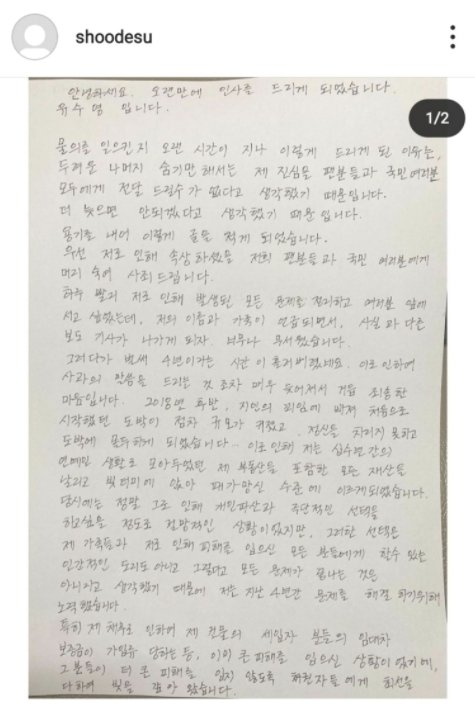 shoodesu
1/2
안녕하세요. 오랜만에 인사를 드리게 되었습니다.
유수영 입니다.
물의를 일으킨지 오랜 시간이 지나 이렇게 드리게 된 이유는,
두려운 나머지 숨기만 해서는 제 진심을 팬분들과 국민 여러분
모두에게 전달 드릴수가 없다고 생각했기 때문입니다.
더 늦으면 안되겠다고 생각했기 때문 입니다.
용기를 내어 이렇게 글을 적게 되었습니다.
우선 저로 인해 속상하셨을 저희 팬분들과 국민 여러분에게
머리 숙여 사죄드립니다.
하루 빨리 저로 인해 발생된 모든 문제를 정리하고 여러분 앞에
서고 싶었는데, 저의 이름과 가족이 언급되면서, 사실과 다른
보도 기사가 나가게 되자 너무나 무서웠습니다.
그러다가 벌써 4년이라는 시간이 흘러버렸네요. 이로 인하여
사과의 말씀을 드리는 것 조차 매우 늦어져서 거듭 죄송한
마음입니다. 2018년 후반, 지인의 꾀임에 빠져 처음으로
시작했던 도박이 점차 규모가 커졌고 정신을 차리지 못하고
도박에 몰두하게 되었습니다... 이로 인해 저는 십수년간의
연예인 생활로 모아두었던 제 부동산을 포함한 모든 재산을
날리고 빚더미에 앉아 패가망신 수준에 이르게되었습니다.
당시에는 정말 그로 인해 개인파산과 극단적인 선택을
하고싶을 정도로 절망적인 상황이었지만, 그러한 선택은
제 가족들과 저로 인해 피해를 입으신 모든 분들에게 할수 있는
인간적인 도리도 아니고 그렇다고 모든 문제가 끝나는 것은
아니라고 생각했기 때문에 저는 지난 4년간 문제를 해결 하기위해
노력했습니다.
특히 제 채무로 인하여 제 건물의 세입자 분들의 임대차
보증금이 가압류 당하는 등, 이미 큰 피해를 입으신 상황이었기에,
그분들이 더 큰 피해를 입지 않도록 채권자들에게 최선을
다하여 빚을 갚아 왔습니다.